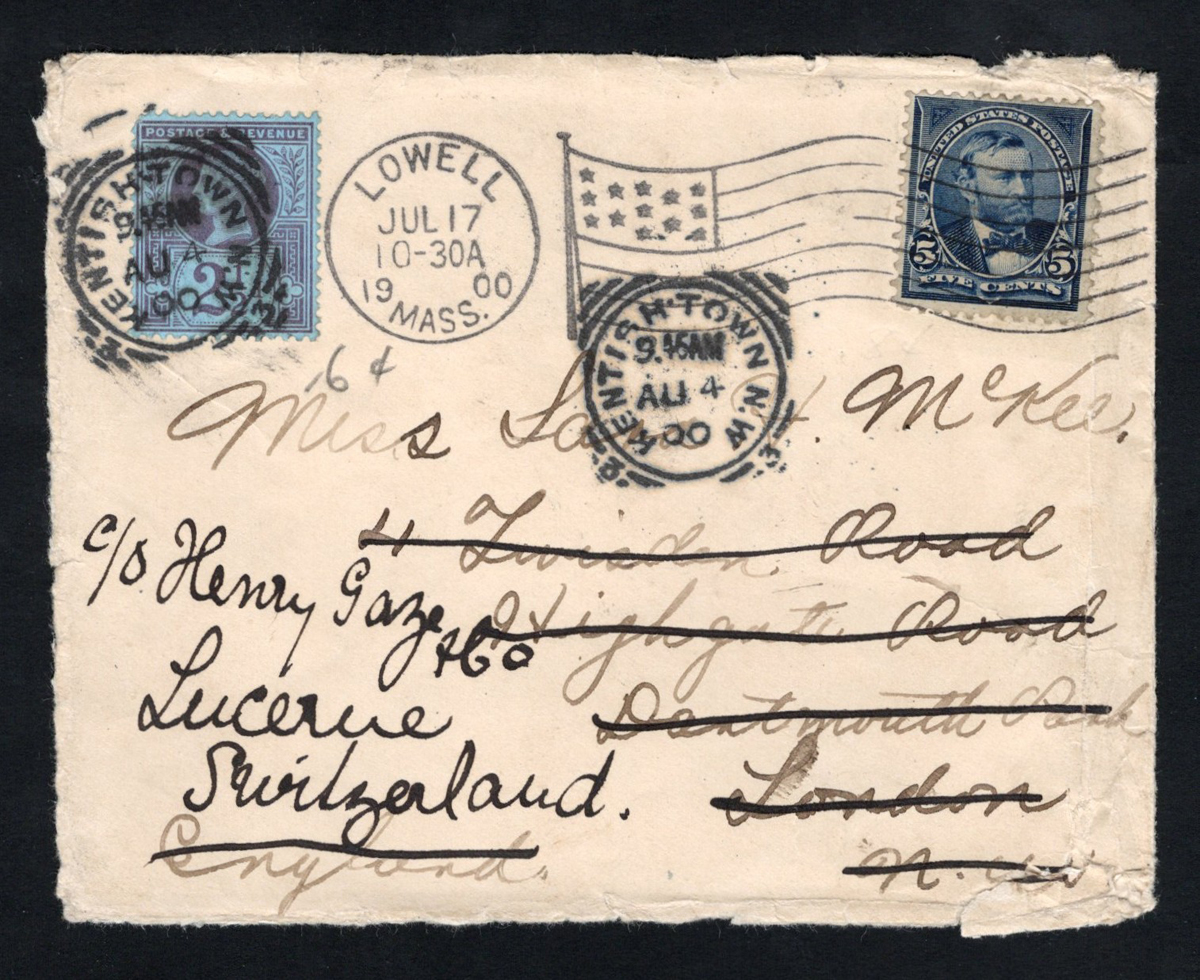 POSTAGE & REVENUE
KENTISH-TOWN N.W
9.45AM
AU 4
00
LOWELL
JUL 17
10-30A
19 00
MASS.
UNITED STATES POSTAGE
5 5
FIVE CENTS
KENTISH-TOWN N.W
9.45AM
AU 4
00
6 ¢
Miss H. McKee.
Road
c/o Henry Gaze
Highgate Road
& Co
Lucerne
Dartmouth Park
Switzerland.
London
England.
N. W